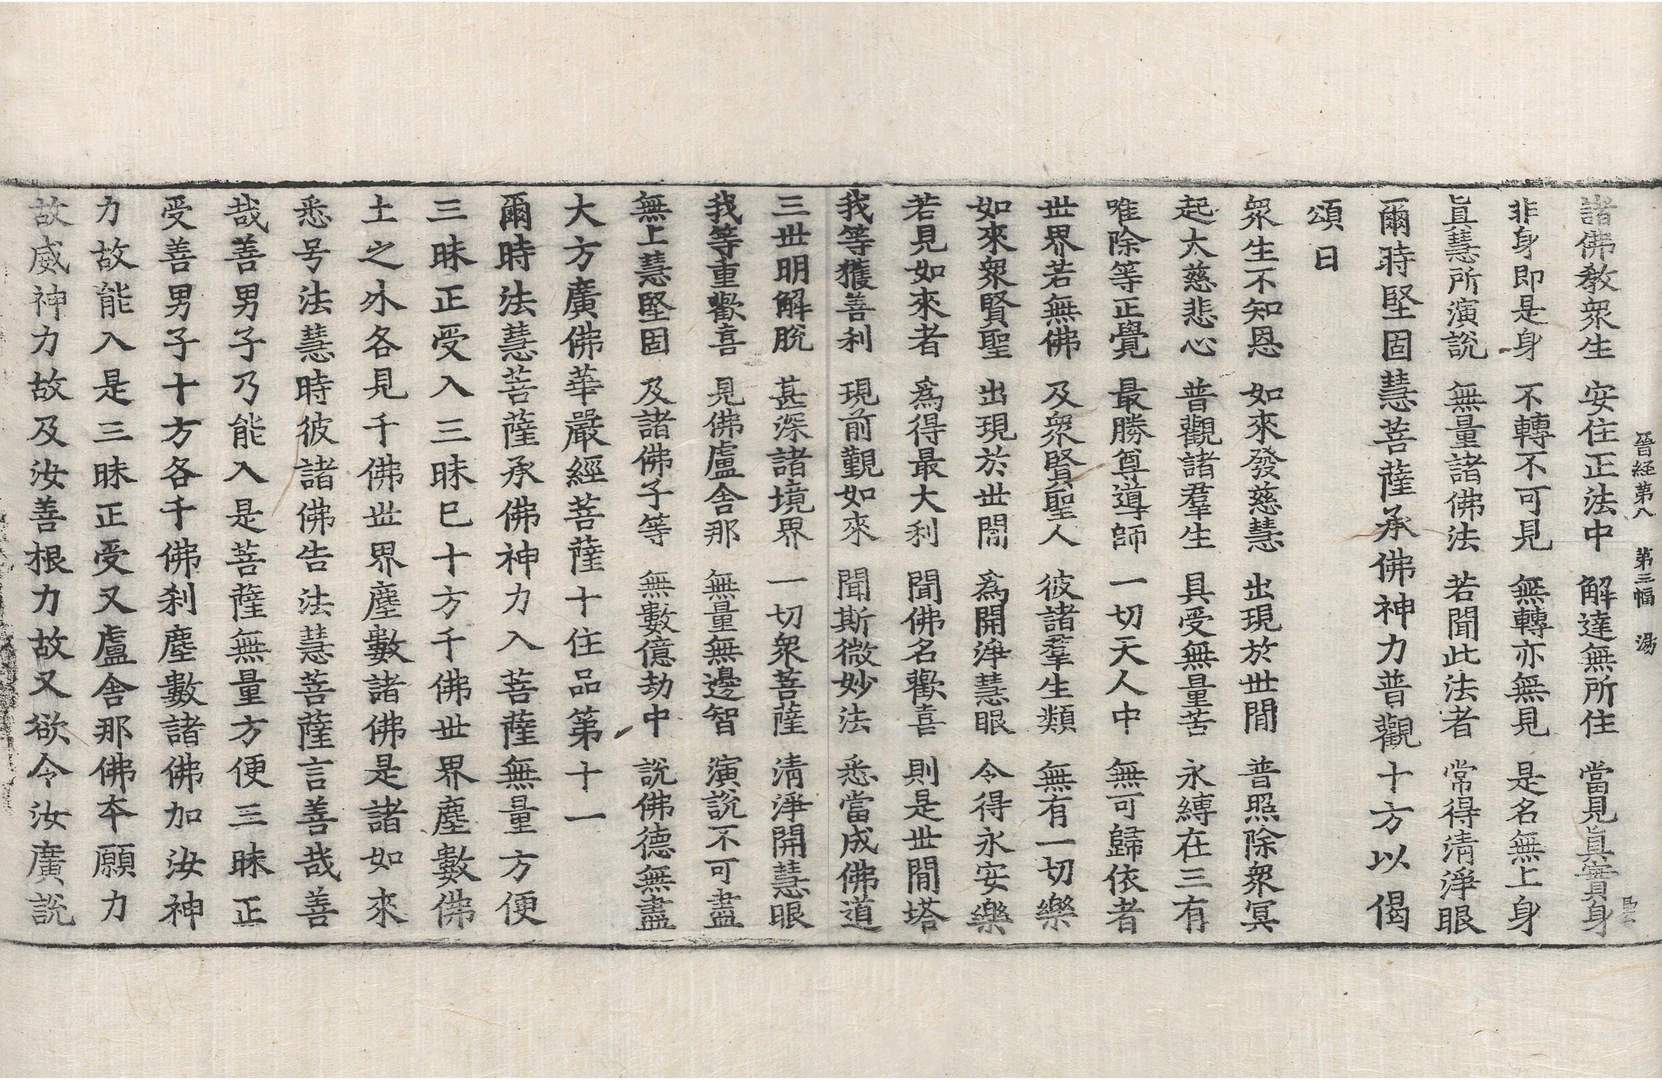 晉經第八　第三幅　湯
諸佛敎衆生　安住正法中　解達無所住　當見眞實身
非身即是身　不轉不可見　無轉亦無見　是名無上身
眞慧所演說　無量諸佛法　若聞此法者　常得清淨眼
爾時堅固慧菩薩承佛神力普觀十方以偈
頌曰
衆生不知恩　如來發慈慧　出現於世間　普照除衆冥
起大慈悲心　普觀諸羣生　具受無量苦　永縛在三有
唯除等正覺　最勝尊導師　一切天人中　無可歸依者
世界若無佛　及衆賢聖人　彼諸羣生類　無有一切樂
如來衆賢聖　出現於世間　爲開淨慧眼　令得永安樂
若見如來者　爲得最大利　聞佛名歡喜　則是世間塔
我等獲善利　現前覲如來　聞斯微妙法　悉當成佛道
三世明解脫　甚深諸境界　一切衆菩薩　清淨開慧眼
我等重歡喜　見佛盧舍那　無量無邊智　演說不可盡
無上慧堅固　及諸佛子等　無數億劫中　說佛德無盡
大方廣佛華嚴經菩薩十住品第十一
爾時法慧菩薩承佛神力入菩薩無量方便
三昧正受入三昧已十方千佛世界塵數佛
土之外各見千佛世界塵數諸佛是諸如來
悉号法慧時彼諸佛告法慧菩薩言善哉善
哉善男子乃能入是菩薩無量方便三昧正
受善男子十方各千佛刹塵數諸佛加汝神
力故能入是三昧正受又盧舍那佛本願力
故威神力故及汝善根力故又欲令汝廣說